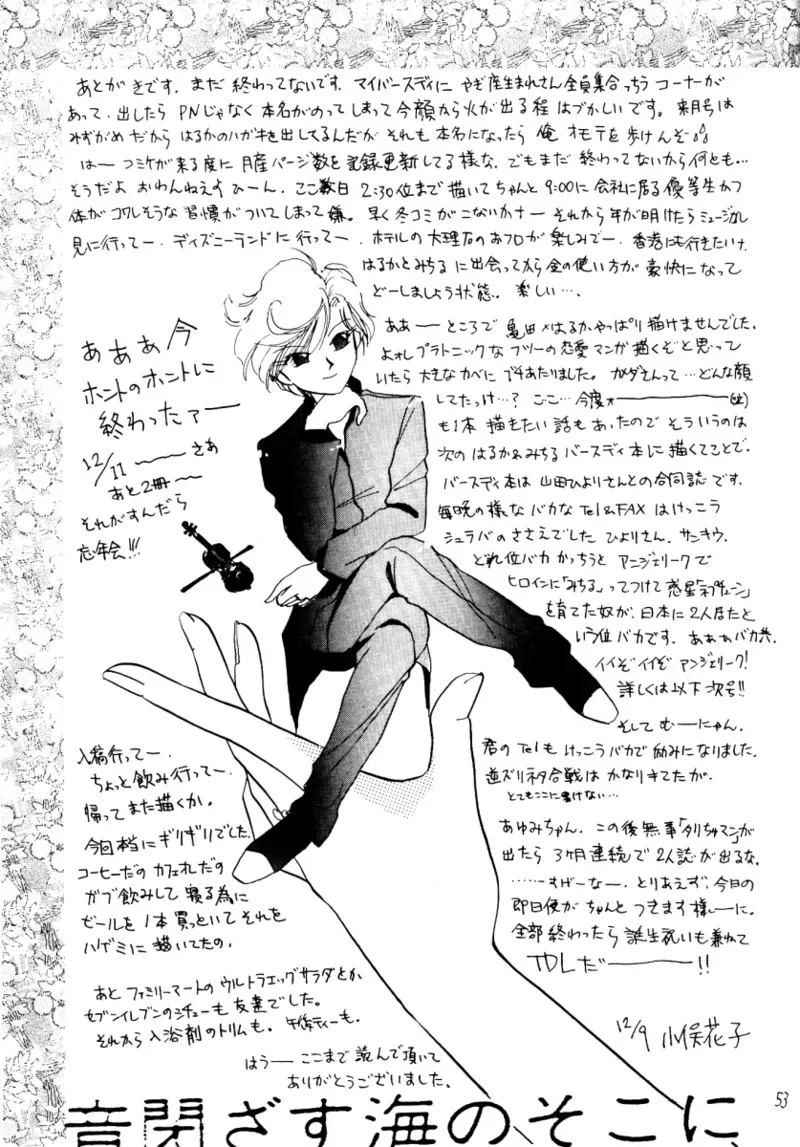 あとがきです。まだ終わってないです。マイバースディにやぎ座生まれさん全員集合っちうコーナーが
あって、出したらPNじゃなく本名がのってしまって今顔から火が出る程はづかしいです。来月号は
みずがめだからはるかのハガキを出してるんだがそれも本名になったら俺オモテを歩けんぞ
はーコミケが来る度に月産ページ数を記録更新してる様な。でもまだ終わってないから何とも…
そうだよおわんねえすひーん。ここ数日2:30位まで描いてちゃんと9:00に会社に居る優等生かつ
体がコワレそうな習慣がついてしまって嫌。早く冬コミがこないかナーそれから年が明けたらミュージカル
見に行ってー、ディズニーランドに行ってー、ホテルの大理石のおフロが楽しみでー、香港にも行きたいけ
はるかとみちるに出会ってから金の使い方が豪快になって
どーしましょう状態。楽しい…。
あああ今
ホントのホントに
終わったァー
12/11ーーさあ
あと2冊ー
それがすんだら
忘年会!!!
ああーところで亀田×はるかやっぱり描けませんでした。
よぉしプラトニックなフツーの恋愛マンガ描くぞと思って
いたら大きなカベにブチあたりました。カメダさんって…どんな顔
してたっけ…?ここ…今度ォーー
も1本描きたい話もあったのでそういうのは
次のはるか&みちるバースディ本に描くってことで。
バースディ本は山田ひよりさんとの合同誌です。
毎晩の様なバカなTel&FAXはけっこう
シュラバのささえでしたひよりさん。サンキウ。
どれ位バカかっちうとアンジェリークで
ヒロインに「みちる」ってつけて惑星「ネプチューン」
を育てた奴が、日本に2人居たと
いう位バカです。あああバカ共。
イイぞイイぞアンジェリーク!
詳しくは以下次号!!
そしてむーにゃん。
君のTelもけっこうバカで励みになりました。
逆ズリネタ合戦はかなりキてたが。
とてもここに書けない…
あゆみちゃん。この後無事「タリちゃマン」が
出たら3ヶ月連続で2人誌が出るな。
……すげーなー。とりあえず、今日の
即日便がちゃんとつきます様ーに。
全部終わったら誕生祝いも兼ねて
TDLだーーー!!
12/9 小俣花子
入稿行ってー。
ちょっと飲み行ってー。
帰ってまた描くか。
今回本当にギリギリでした。
コーヒーだのカフェオレだの
ガブ飲みして寝る為に
ビールを1本買っといてそれを
ハゲミに描いてたの。
あとファミリーマートのウルトラエッグサラダとか
セブンイレブンのシチューも友達でした。
それから入浴剤のトリムも。午後ティーも。
はうーここまで読んで頂いて
ありがとうございました。
音閉ざす海のそこに
53